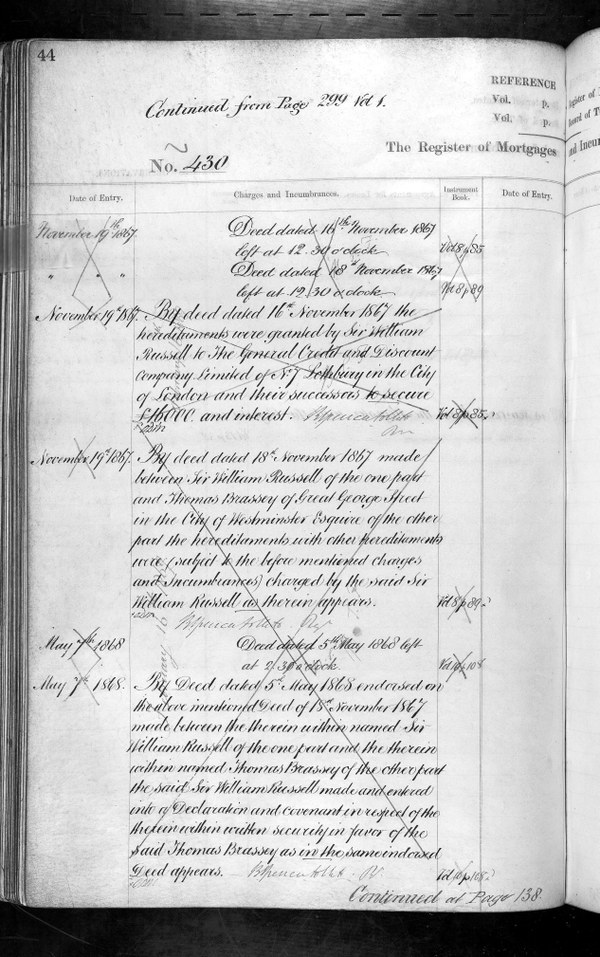 44
REFERENCE
Continued from Page 299 Vol 1.
Vol. p.
Vol. p.
The Register of Mortgages
No. 430
Date of Entry.
Charges and Incumbrances.
Instrument Book.
Date of Entry.
November 19th 1867
Deed dated 16th November 1867
left at 12.30 o'clock
Vol 8 p 85
" " "
Deed dated 18th November 1867
left at 12.30 o'clock
Vol 8 p 89
November 19th 1867.
By deed dated 16th November 1867 the
hereditaments were granted by Sir William
Russell to The General Credit and Discount
Company Limited of No 7 Lothbury in the City
of London and their successors to secure
£15000 and interest.
Vol 8 p 85.
November 19th 1867.
By deed dated 18th November 1867 made
between Sir William Russell of the one part
and Thomas Brassey of Great George Street
in the City of Westminster Esquire of the other
part the hereditaments with other hereditaments
were (subject to the before mentioned charges
and Incumbrances) charged by the said Sir
William Russell as therein appears.
Vol 8 p 89.
May 7th 1868
Deed dated 5th May 1868 left
at 2.30 o'clock
Vol 10 p 108
May 7th 1868.
By Deed dated 5th May 1868 endorsed on
the above mentioned Deed of 18th November 1867
made between the therein within named Sir
William Russell of the one part and the therein
within named Thomas Brassey of the other part
the said Sir William Russell made and entered
into a Declaration and covenant in respect of the
therein within written security in favor of the
said Thomas Brassey as in the same indorsed
Deed appears.
Vol 10 p 108.
Continued at Page 138.